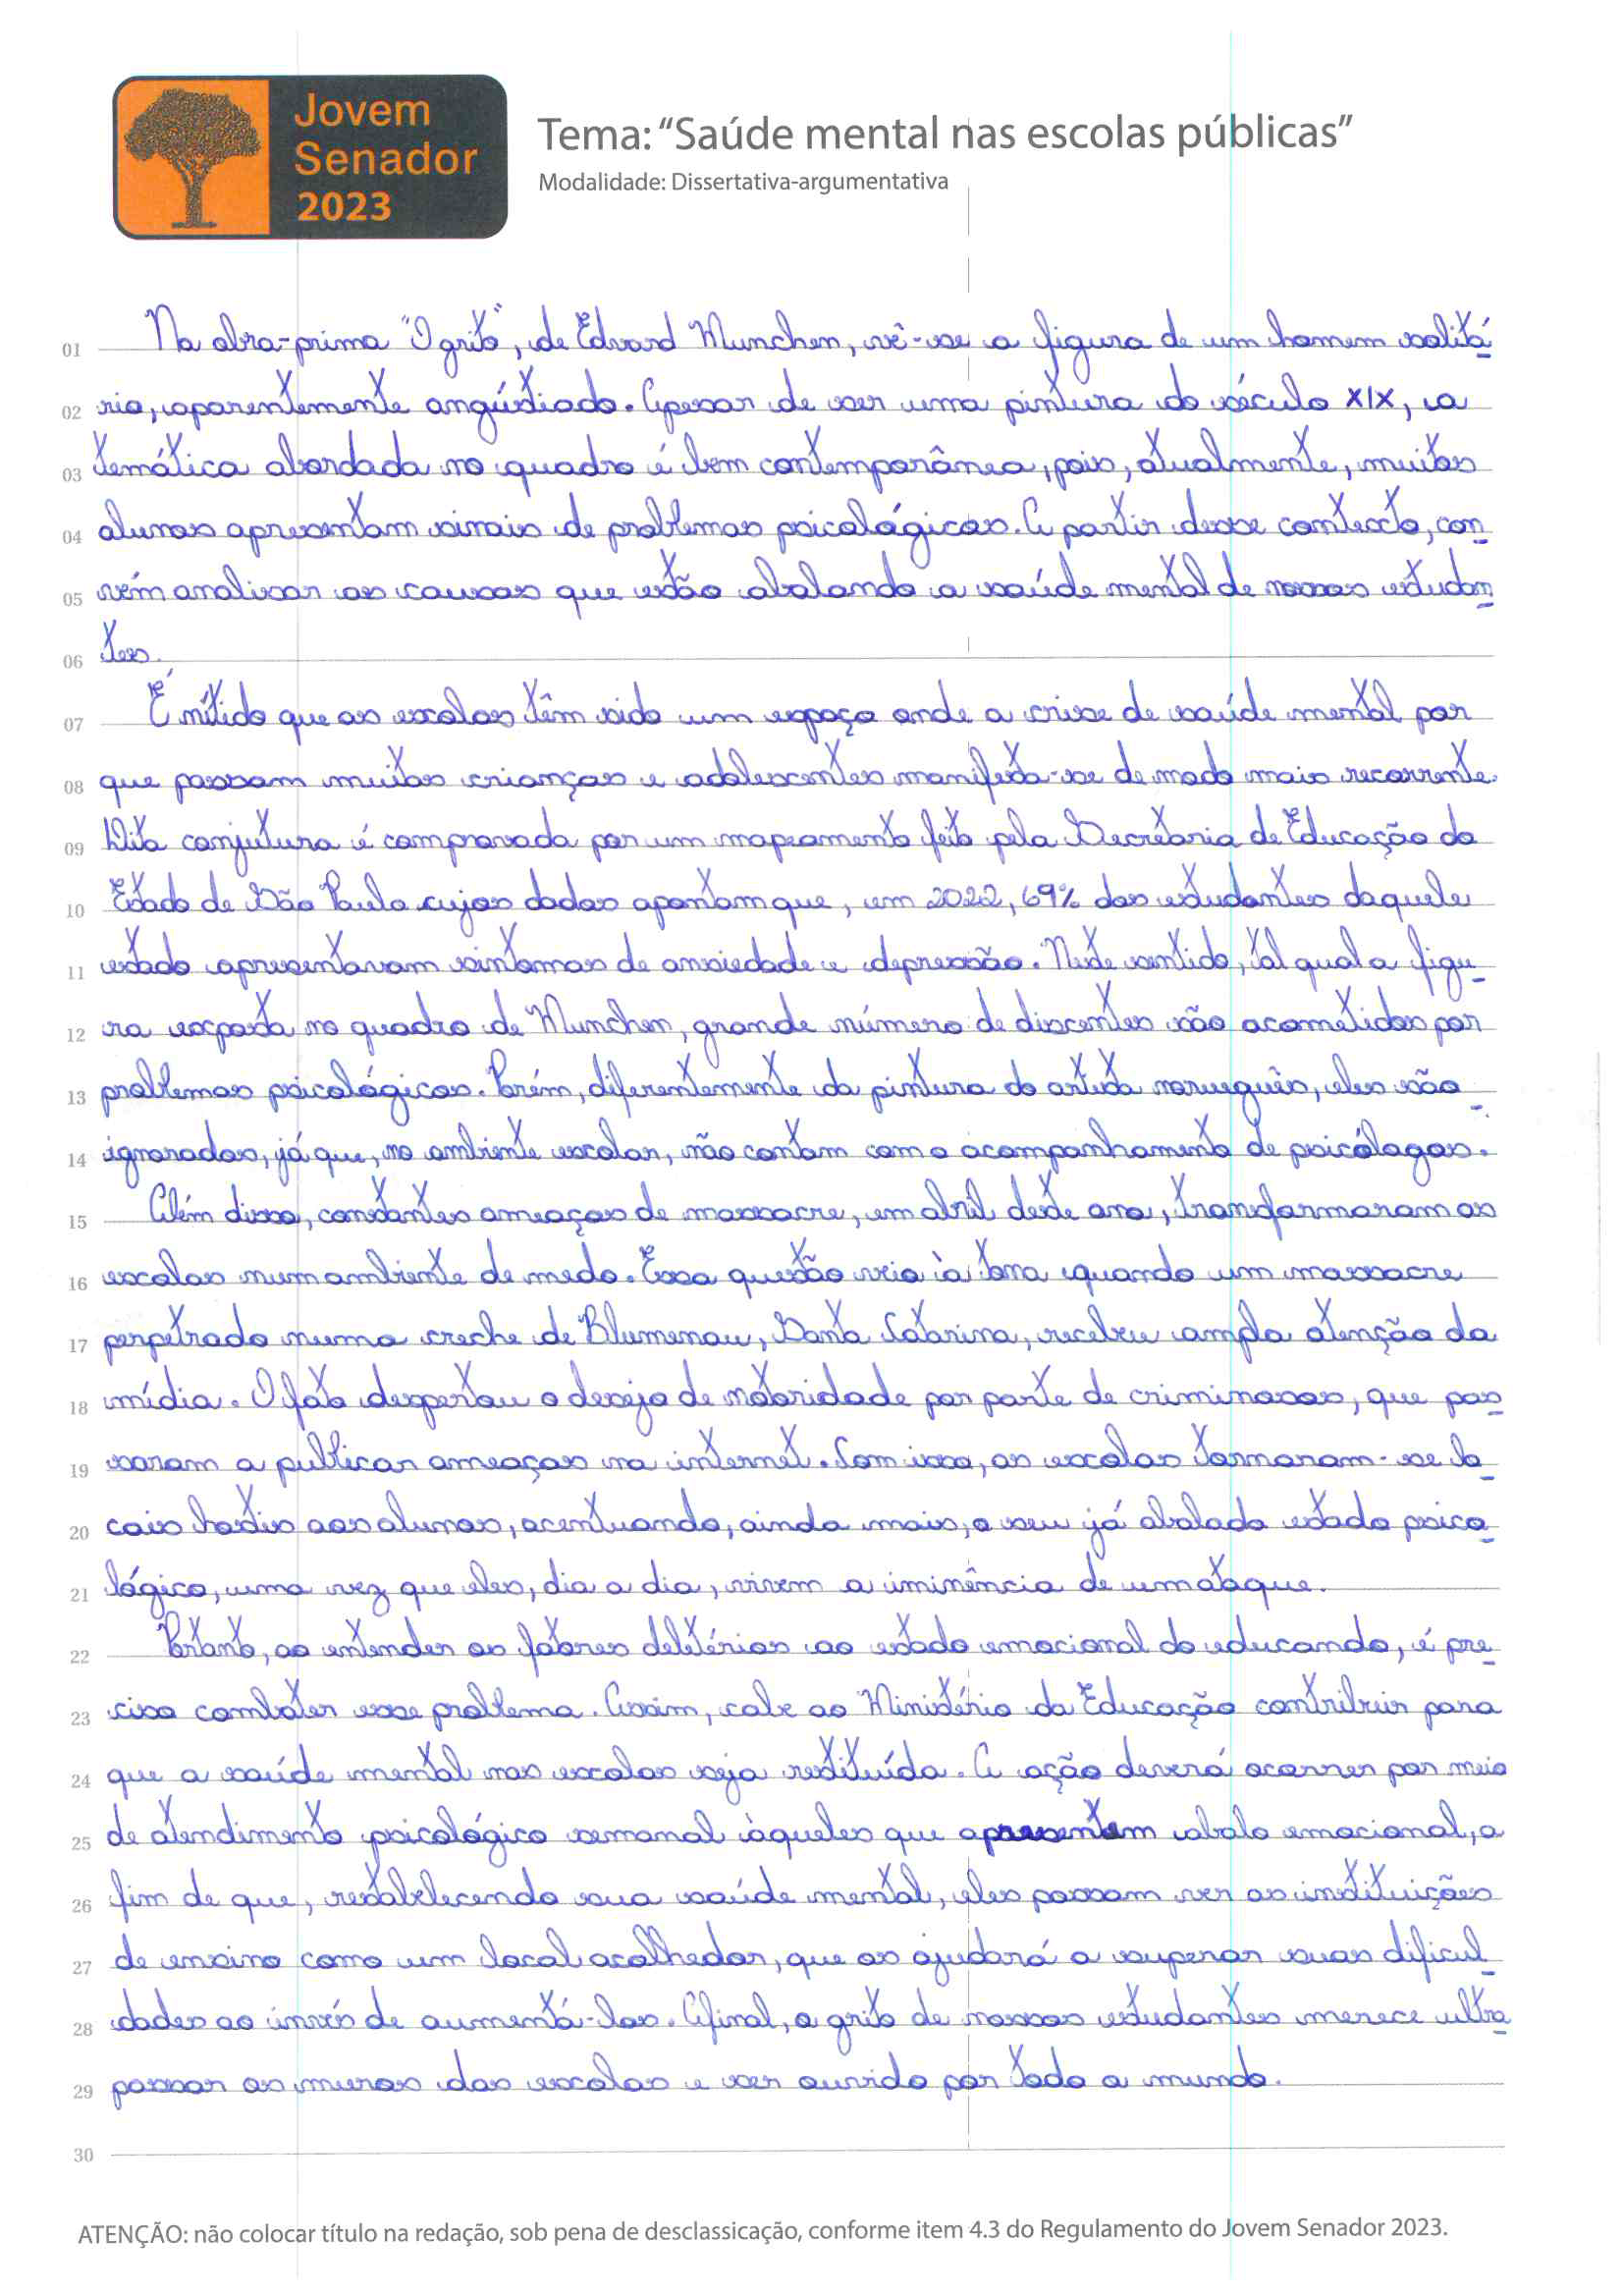 Jovem
Senador
2023
Tema: “Saúde mental nas escolas públicas”
Modalidade: Dissertativa-argumentativa
01 Na obra-prima "O grito", de Edvard Munchen, vê-se a figura de um homem solitá
02 rio, aparentemente angústiado. Apesar de ser uma pintura do século XIX, a
03 temática abordada no quadro é bem contemporânea, pois, atualmente, muitos
04 alunos apresentam sinais de problemas psicológicos. A partir desse contexto, con
05 vém analisar as causas que estão abalando a saúde mental de nossos estudan
06 tes.
07 É nítido que as escolas têm sido um espaço onde a crise de saúde mental por
08 que passam muitas crianças e adolescentes manifesta-se de modo mais recorrente.
09 Dita conjutura é comprovada por um mapeamento feito pela Secretaria de Educação do
10 Estado de São Paulo cujos dados apontam que, em 2022, 69% dos estudantes daquele
11 estado apresentavam sintomas de ansiedade e depressão. Neste sentido, tal qual a figu
12 ra exposta no quadro de Munchen, grande número de discentes são acometidos por
13 problemas psicológicos. Porém, diferentemente da pintura do artista norueguês, eles são
14 ignorados, já que, no ambiente escolar, não contam com o acompanhamento de psicólogos.
15 Além disso, constantes ameaças de massacre, em abril deste ano, transformaram as
16 escolas num ambiente de medo. Essa questão veio à tona quando um massacre
17 perpetrado numa creche de Blumenau, Santa Catarina, recebeu ampla atenção da
18 mídia. O fato despertou o desejo de notoridade por parte de criminosos, que pas
19 saram a publicar ameaças na internet. Com isso, as escolas tornaram-se lo
20 cais hostis aos alunos, acentuando, ainda mais, o seu já abalado estado psico
21 lógico, uma vez que eles, dia a dia, vivem a iminência de um ataque.
22 Portanto, ao entender os fatores deletérios ao estado emocional do educando, é pre
23 ciso combater esse problema. Assim, cabe ao Ministério da Educação contribuir para
24 que a saúde mental nas escolas seja restituída. A ação deverá ocorrer por meio
25 de atendimento psicológico semanal àqueles que apresentem abalo emocional, a
26 fim de que, restabelecendo sua saúde mental, eles possam ver as instituições
27 de ensino como um local acolhedor, que os ajudará a superar suas dificul
28 dades ao invés de aumentá-las. Afinal, o grito de nossos estudantes merece ultra
29 passar os muros das escolas e ser ouvido por todo o mundo.
30
ATENÇÃO: não colocar título na redação, sob pena de desclassicação, conforme item 4.3 do Regulamento do Jovem Senador 2023.